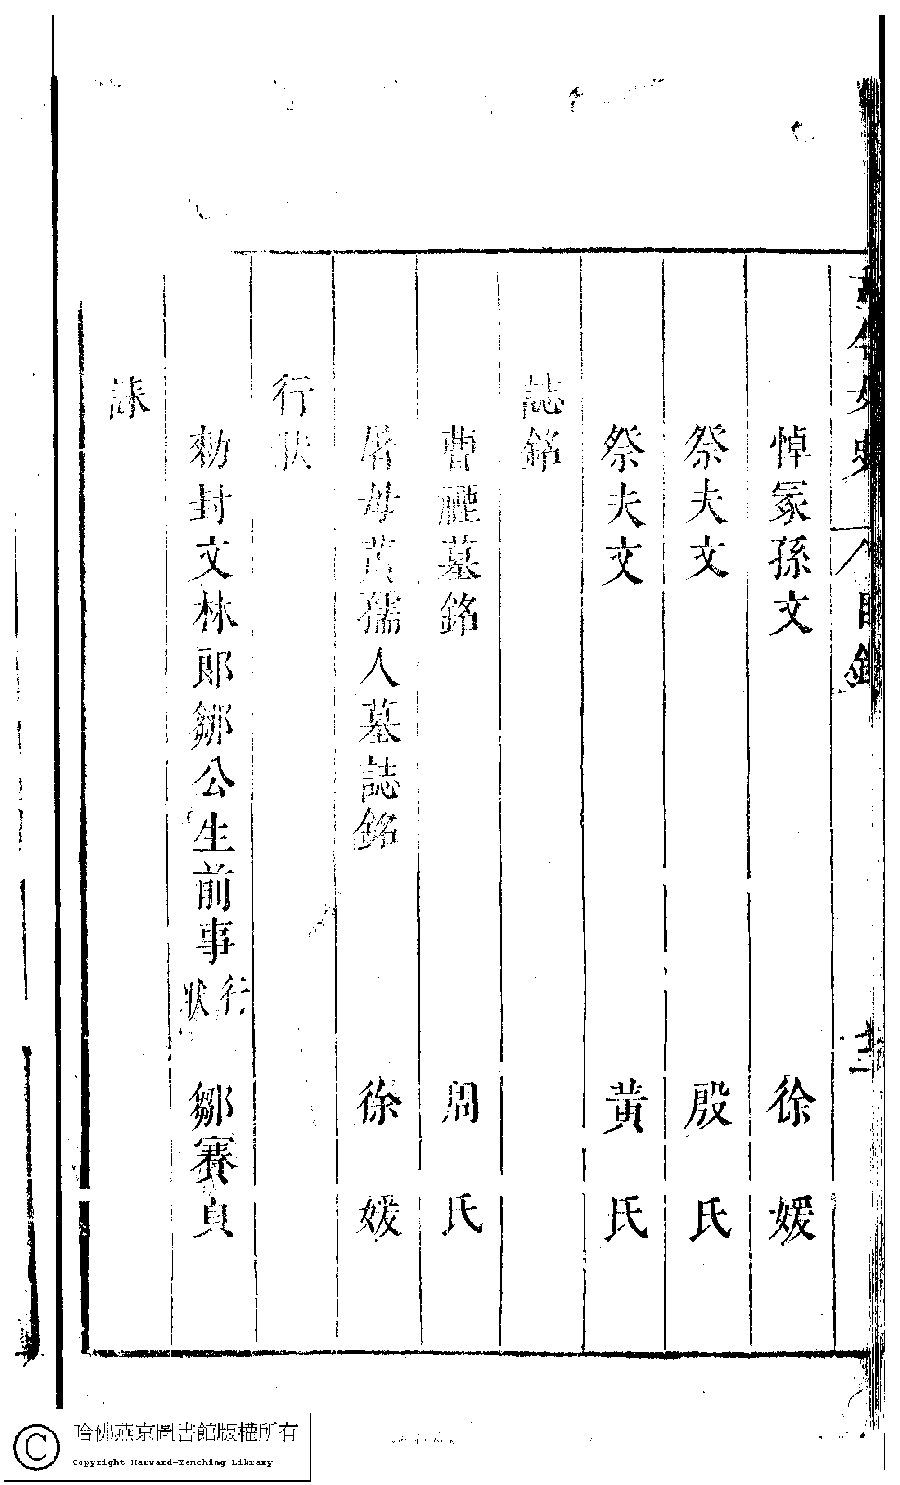 古今女史 目錄 十三
悼冢孫文 徐媛
祭夫文 殷氏
祭夫文 黃氏
誌銘
曹禋墓銘 周氏
屠母黃孺人墓誌銘 徐媛
行狀
勑封文林郎鄒公生前事行狀 鄒賽貞
誄
哈佛燕京圖書館版權所有
Copyright Harvard-Yenching Library